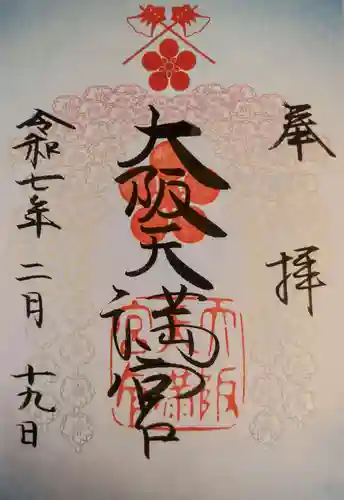 奉拝
大阪天満宮
大阪天満宮
令和七年二月十九日